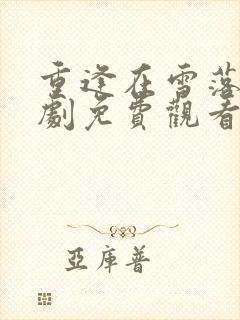 重逢在雪落
劇免費觀看
亞庫普